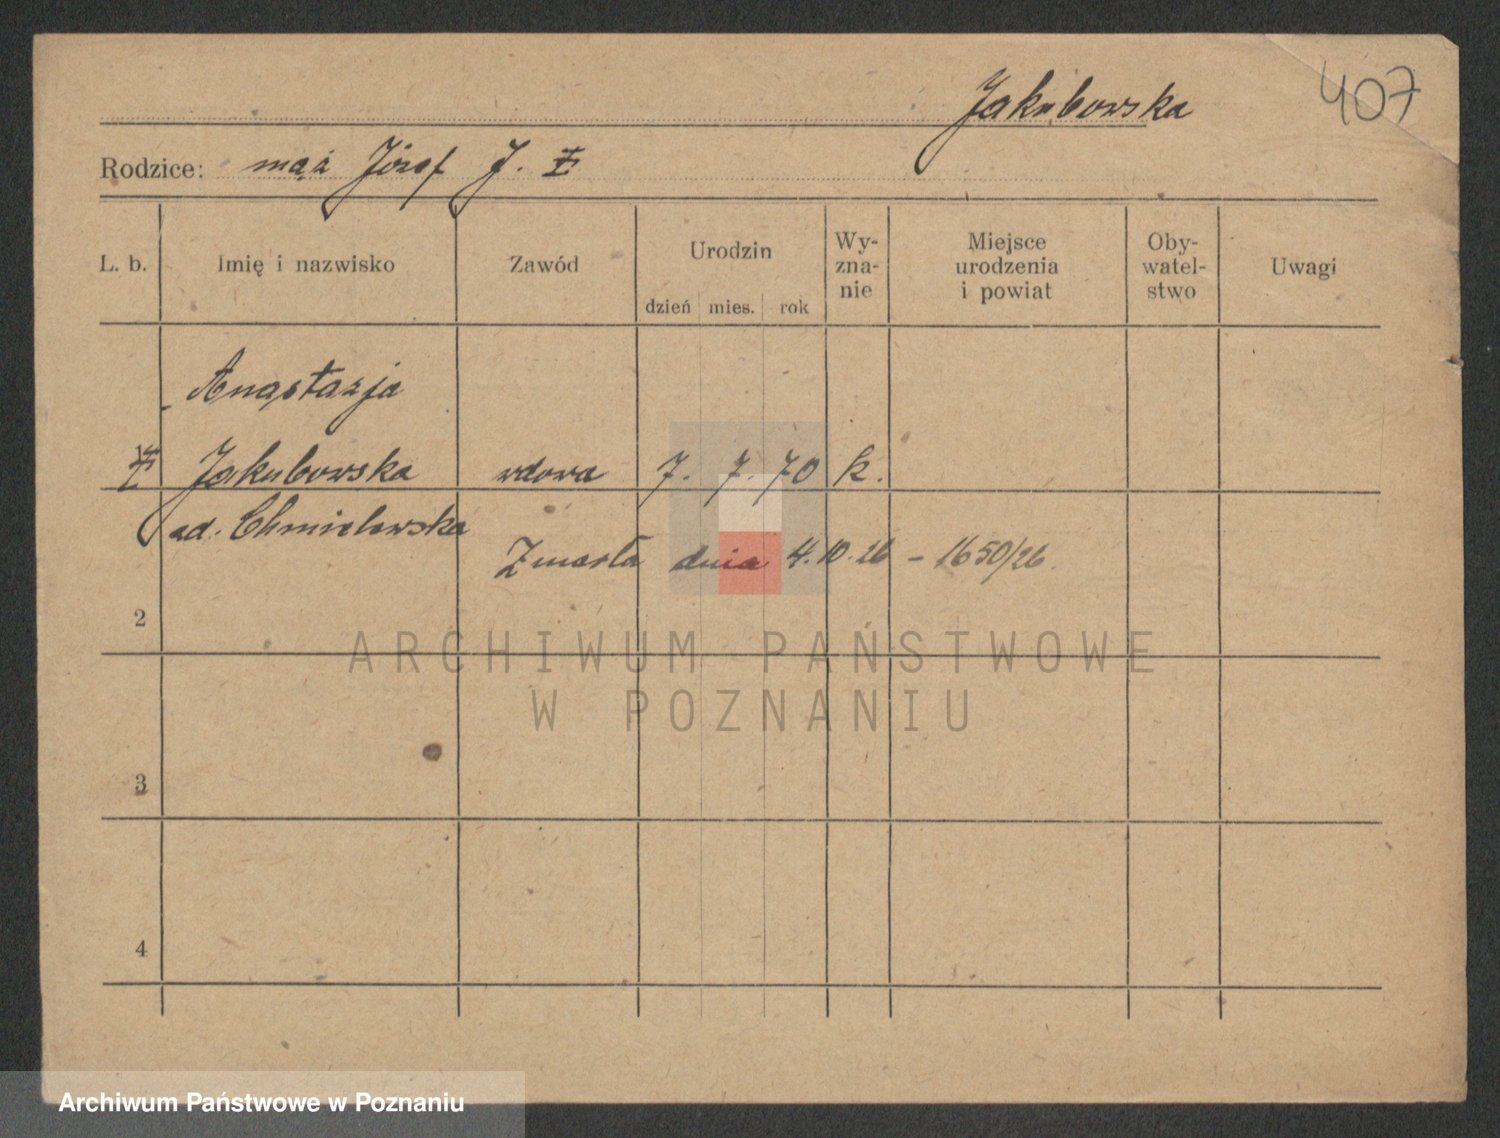 Jakubowska
407
Rodzice: mąż Józef J.
L. b. Imię i nazwisko Zawód Urodzin dzień mies. rok Wy-zna-nie Miejsce urodzenia i powiat Oby-watel-stwo Uwagi
Anastazja
Jakubowska wdowa 7. 7. 70 k.
ad. Chmielewska
Zmarła dnia 4.10.26 – 1650/26.
2
ARCHIWUM PAŃSTWOWE
W POZNANIU
3
4
Archiwum Państwowe w Poznaniu